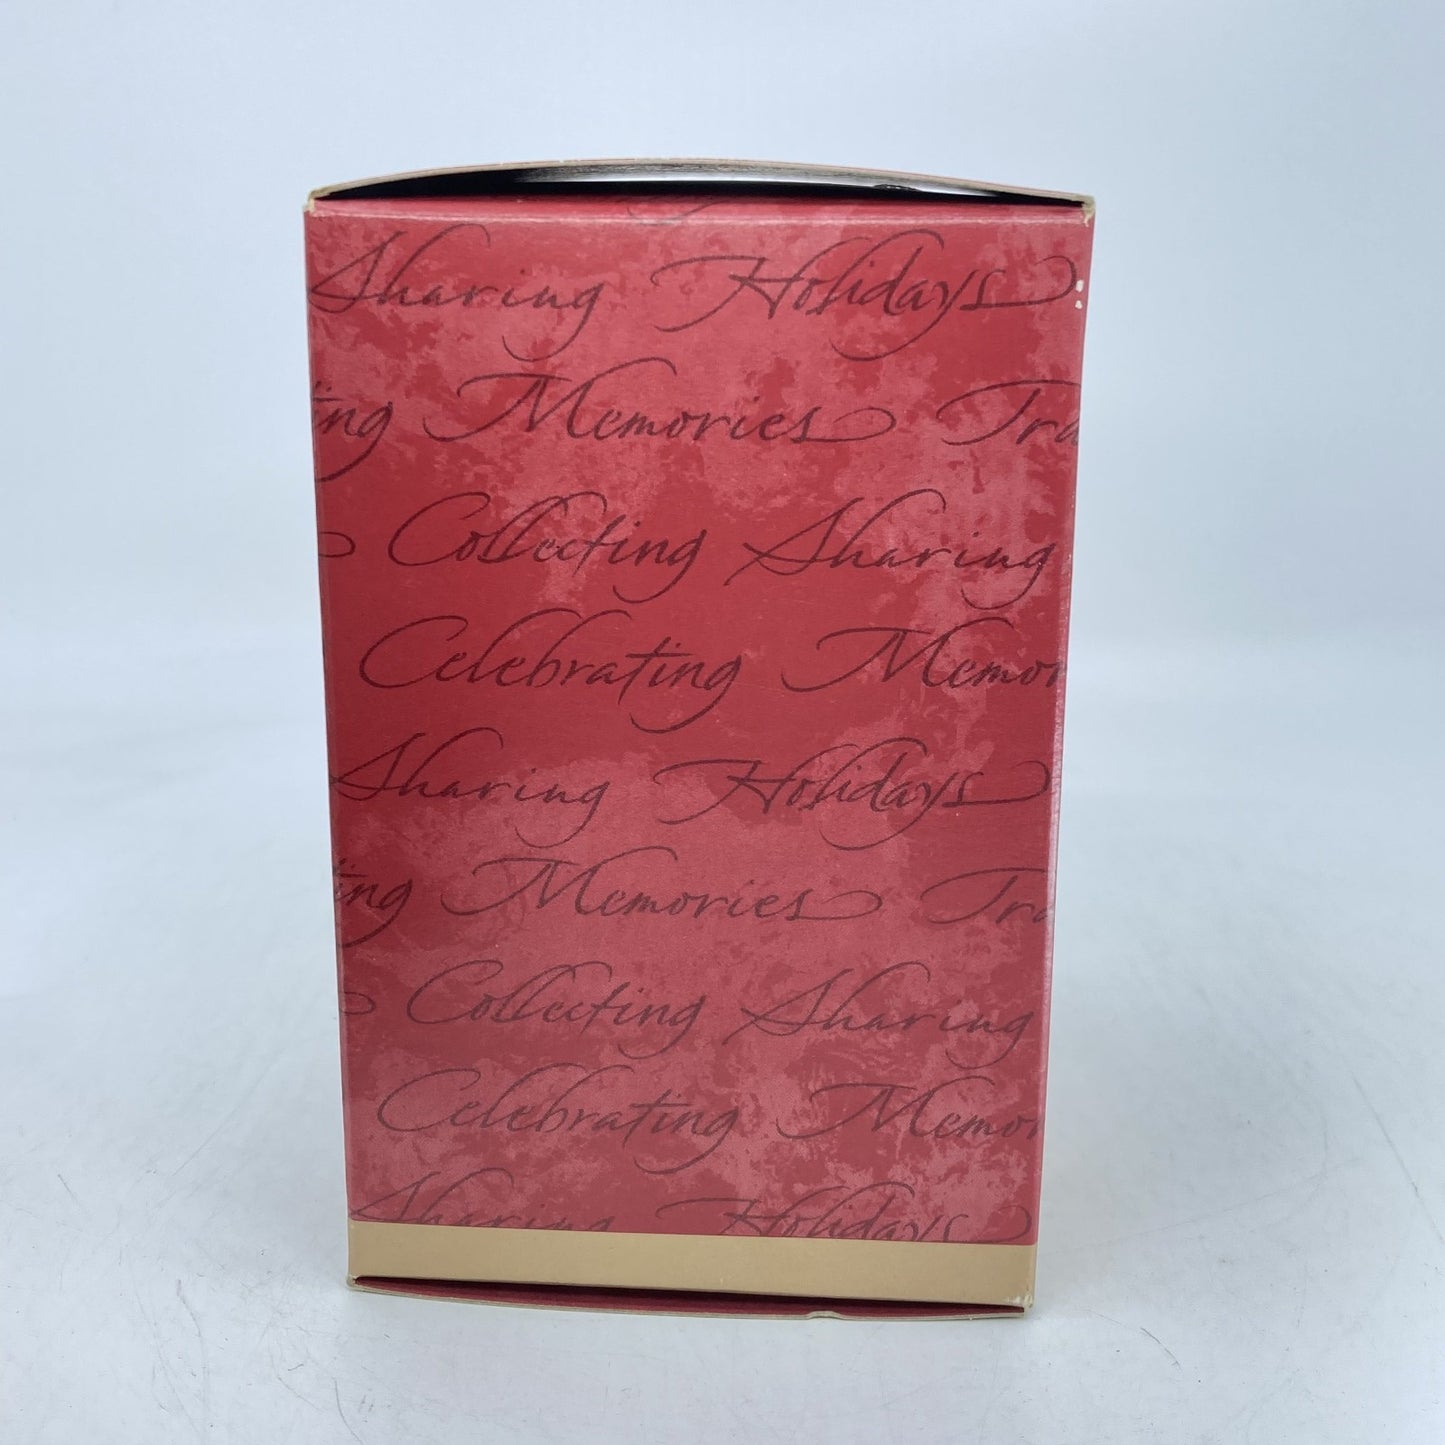 Sharing Holidays
ing Memories Tra
Collecting Sharing
Celebrating Memor
Sharing Holidays
ing Memories Tra
Collecting Sharing
Celebrating Memor
Sharing Holidays